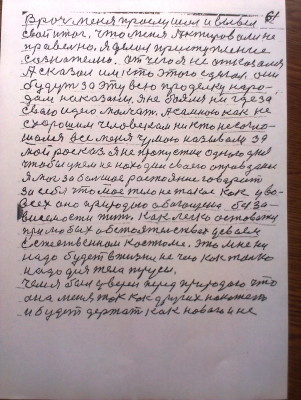 61
Врач меня прослушал и вывел
свой итог, что меня Актировали не
правельно. Я делал приступление
сознательно. от чего я не отказался
Я сказал им кто этого сделал. они
будут за эту всю проделку наро-
дам наказаны. Яне боялся ни где за
свою идею молчат. Асамною как не
схорошим человеком никто не согло-
шался все меня чумою называли за
мой росказ я не пропустил одного дня
чтобы у мене не находил своего оправдания
Я мог за большое растояние говорит
за себя что мое тело не такое Как у во-
всех оно природою обогощена без за-
висемости жить. Как легко оставатц
при любых обстоятельствах девоем
Естественном костюме. Это мне ни
надо будет в жизни не чего как только
надо для тела труси.
Чем я был уверен перед природою что
она меня так как других накажет
и будет держат как нового и не